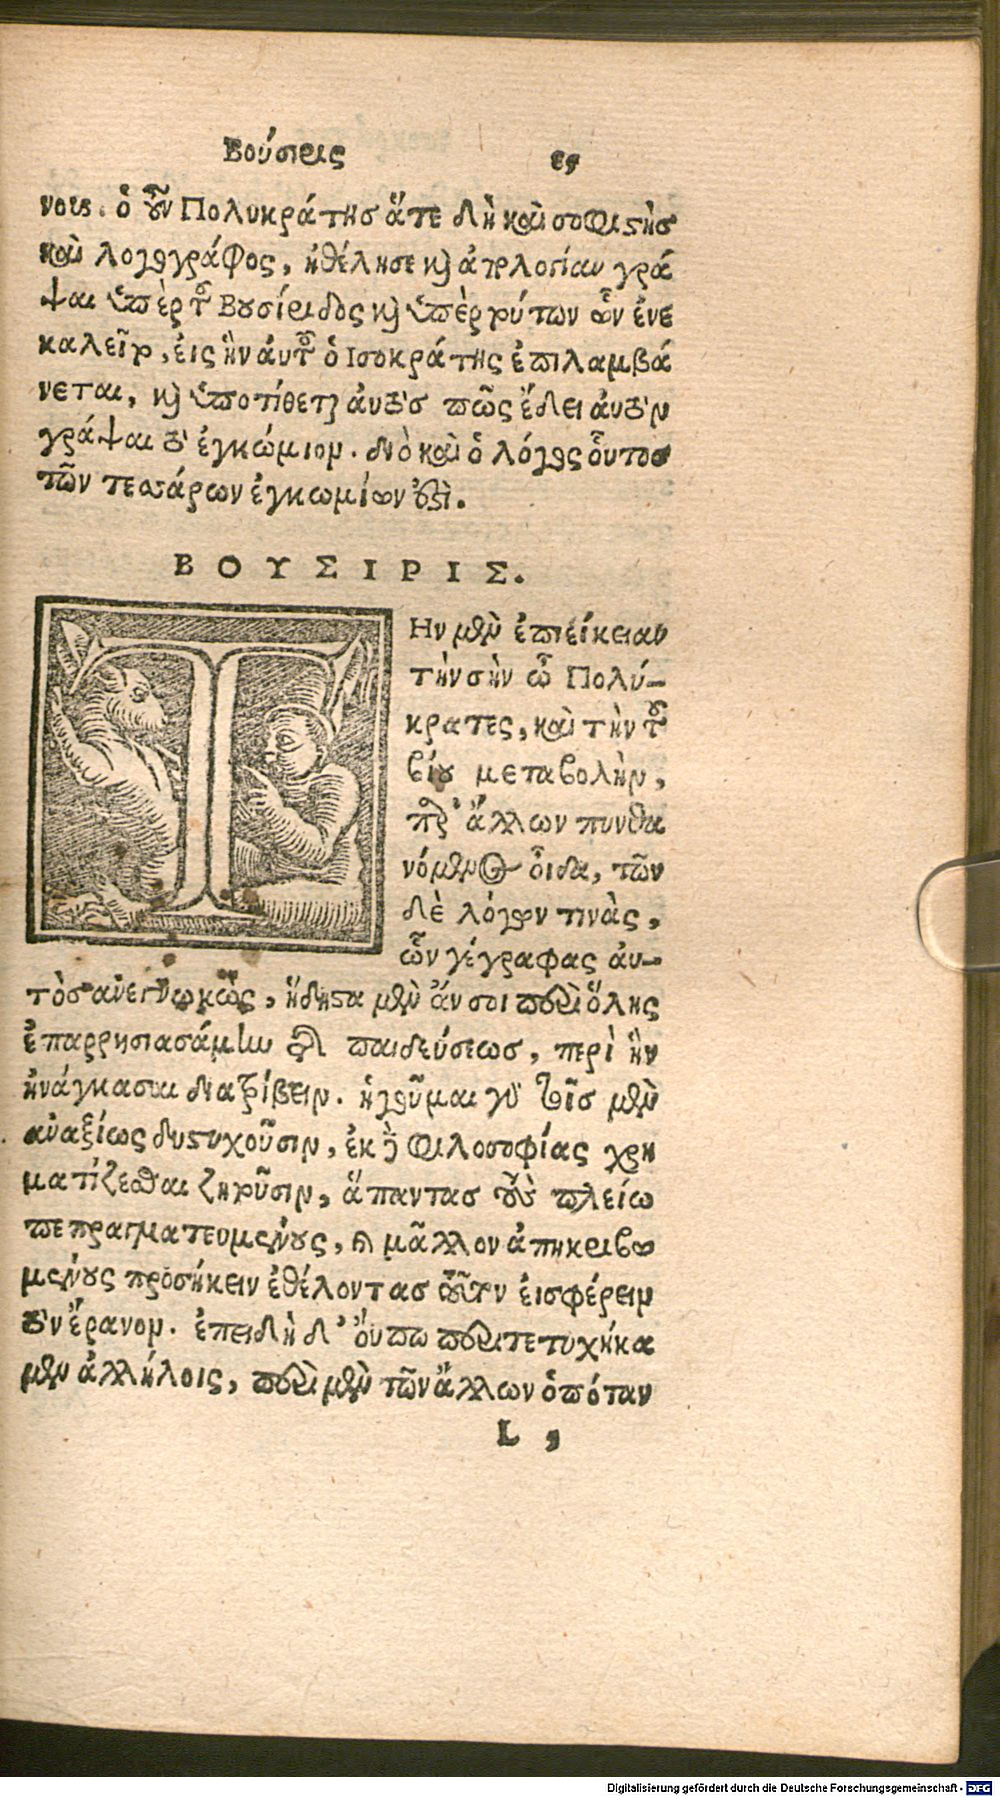 Βούσιρις
νοις. ὁ οὖν Πολυκράτης ἅτε δὴ καὶ σοφιστὴς
καὶ λογογράφος, ἠθέλησε καὶ ἀπολογίαν γρά
ψαι ὑπὲρ τοῦ Βουσίριδος καὶ ὑπὲρ τούτων ὧν ἐνε
καλεῖτο, εἰς ἣν αὐτοῦ ὁ Ισοκράτης ἐπιλαμβά
νεται, καὶ ὑποτίθεται αὐτὸς πῶς ἔδει αὐτὸν
γράψαι τὸ ἐγκώμιον. διὸ καὶ ὁ λόγος οὗτος
τῶν τεσσάρων ἐγκωμίων ἐστὶ.
ΒΟΥΣΙΡΙΣ.
ΤΗν μὲν ἐπιείκειαν
τὴν σὴν ὦ Πολύ-
κρατες, καὶ τὴν τοῦ
βίου μεταβολὴν,
παρ' ἄλλων πυνθα
νόμενος οἶδα, τῶν
δὲ λόγων τινὰς,
ὧν γέγραφας αὐ-
τὸς ἀνεγνωκὼς, ἥδιστα μὲν ἄν σοι περὶ ὅλης
ἐπαρρησιασάμην τῆς παιδεύσεως, περὶ ἣν
ἠνάγκασαι διατρίβειν. ἡγοῦμαι γὰρ τοῖς μὲν
ἀναξίως δυστυχοῦσιν, ἐκ δὲ φιλοσοφίας χρη
ματίζεσθαι ζητοῦσιν, ἅπαντας τοὺς πλείω
πεπραγματευμένους, καὶ μᾶλλον ἀπηκριβω
μένους προσήκειν ἐθέλοντας τοῦτον εἰσφέρειν
τὸν ἔρανον. ἐπειδὴ δ' οὔπω περιτετυχήκα
μεν ἀλλήλοις, περὶ μὲν τῶν ἄλλων ὁπόταν
L
Digitalisierung gefördert durch die Deutsche Forschungsgemeinschaft - DFG